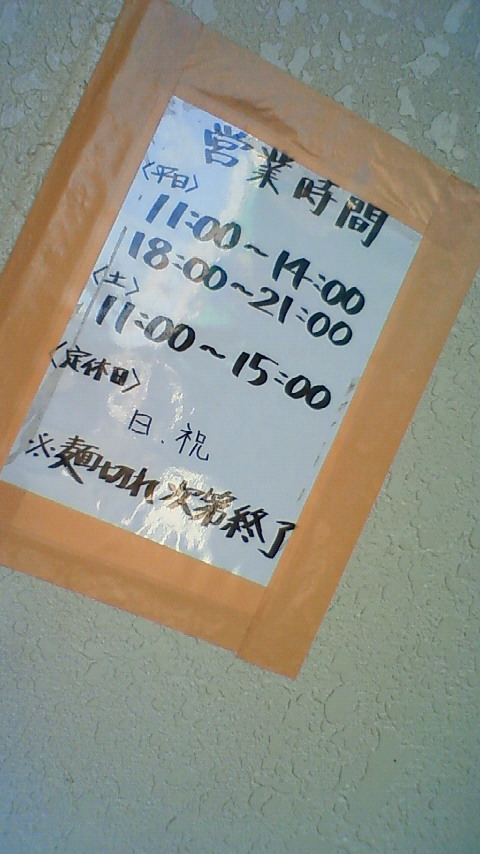 営業時間
〈平日〉
11:00～14:00
18:00～21:00
〈土〉
11:00～15:00
〈定休日〉
日.祝
※麺切れ次第終了